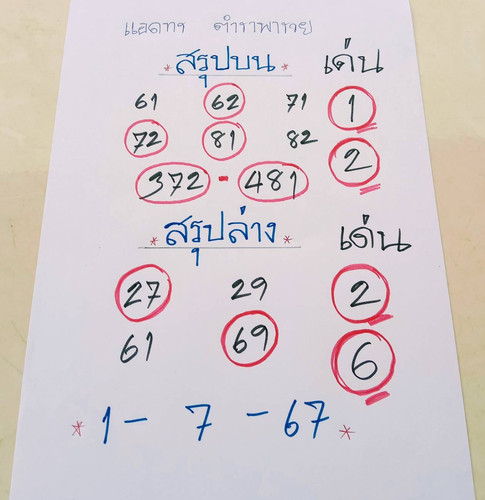 แอดทร ตำราพารวย
* สรุปบน * เด่น
61 62 71 1
72 81 82 2
372 - 481
* สรุปล่าง * เด่น
27 29 2
61 69 6
* 1 - 7 - 67 *